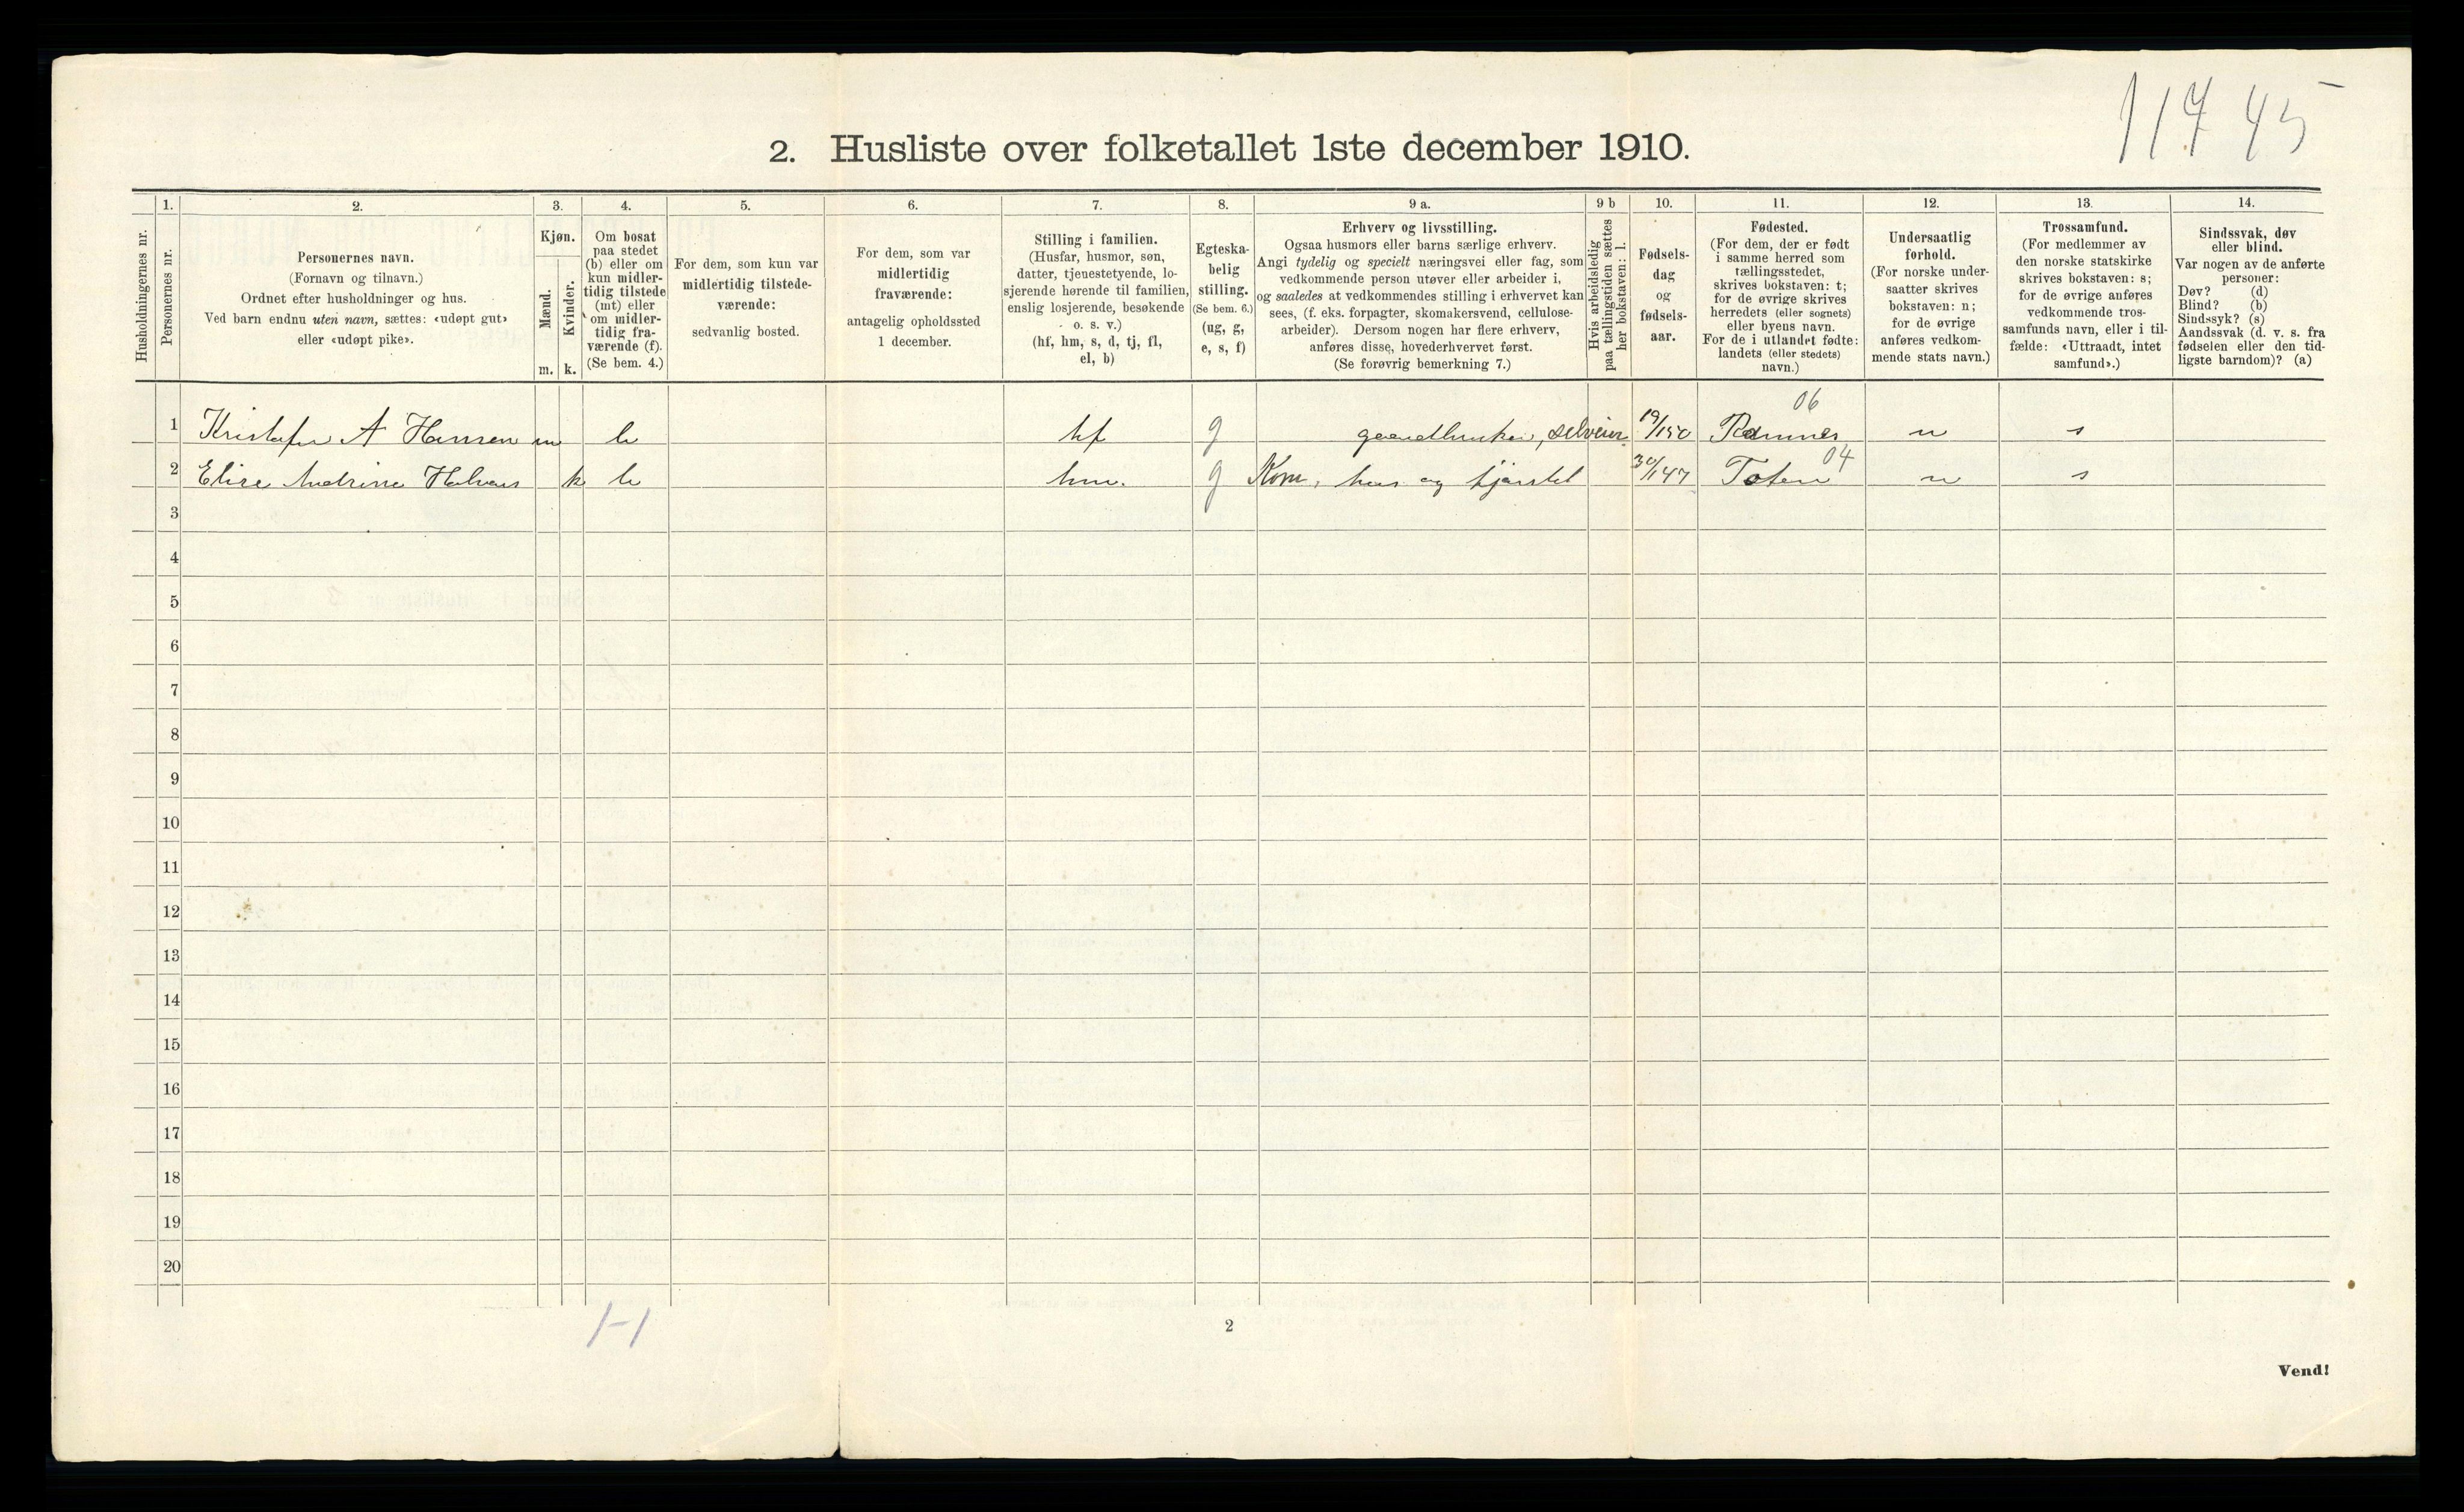 117 45
2. Husliste over folketallet 1ste december 1910.
Husholdningernes nr.
1.
Personernes nr.
2.
Personernes navn.
(Fornavn og tilnavn.)
Ordnet efter husholdninger og hus.
Ved barn endnu uten navn, sættes: «udøpt gut»
eller «udøpt pike».
3.
Kjøn.
Mænd.
Kvinder.
m. k.
4.
Om bosat
paa stedet
(b) eller om
kun midler-
tidig tilstede
(mt) eller
om midler-
tidig fra-
værende (f).
(Se bem. 4.)
5.
For dem, som kun var
midlertidig tilstede-
værende:
sedvanlig bosted.
6.
For dem, som var
midlertidig
fraværende:
antagelig opholdssted
1 december.
7.
Stilling i familien.
(Husfar, husmor, søn,
datter, tjenestetyende, lo-
sjerende hørende til familien,
enslig losjerende, besøkende
o. s. v.)
(hf, hm, s, d, tj, fl,
el, b)
8.
Egteska-
belig
stilling.
(Se bem. 6.)
(ug, g,
e, s, f)
9 a.
Erhverv og livsstilling.
Ogsaa husmors eller barns særlige erhverv.
Angi tydelig og specielt næringsvei eller fag, som
vedkommende person utøver eller arbeider i,
og saaledes at vedkommendes stilling i erhvervet kan
sees, (f. eks. forpagter, skomakersvend, cellulose-
arbeider). Dersom nogen har flere erhverv,
anføres disse, hovederhvervet først.
(Se forøvrig bemerkning 7.)
9 b
Hvis arbeidsledig
paa tællingstiden sættes
her bokstaven: l.
10.
Fødsels-
dag
og
fødsels-
aar.
11.
Fødested.
(For dem, der er født
i samme herred som
tællingsstedet,
skrives bokstaven: t;
for de øvrige skrives
herredets (eller sognets)
eller byens navn.
For de i utlandet fødte:
landets (eller stedets)
navn.)
12.
Undersaatlig
forhold.
(For norske under-
saatter skrives
bokstaven: n;
for de øvrige
anføres vedkom-
mende stats navn.)
13.
Trossamfund.
(For medlemmer av
den norske statskirke
skrives bokstaven: s;
for de øvrige anføres
vedkommende tros-
samfunds navn, eller i til-
fælde: «Uttraadt, intet
samfund».)
14.
Sindssvak, døv
eller blind.
Var nogen av de anførte
personer:
Døv? (d)
Blind? (b)
Sindssyk? (s)
Aandssvak (d. v. s. fra
fødselen eller den tid-
ligste barndom)? (a)
06
1 Kristofer A Hansen m b hf g gaardbruker, selveier 19/1 50 Ramnes n s
04
2 Elise Andrine k b hm. g hus og 30/1 47 Toten n s
3
4
5
6
7
8
9
10
11
12
13
14
15
16
17
18
19
20
1-1
2
Vend!